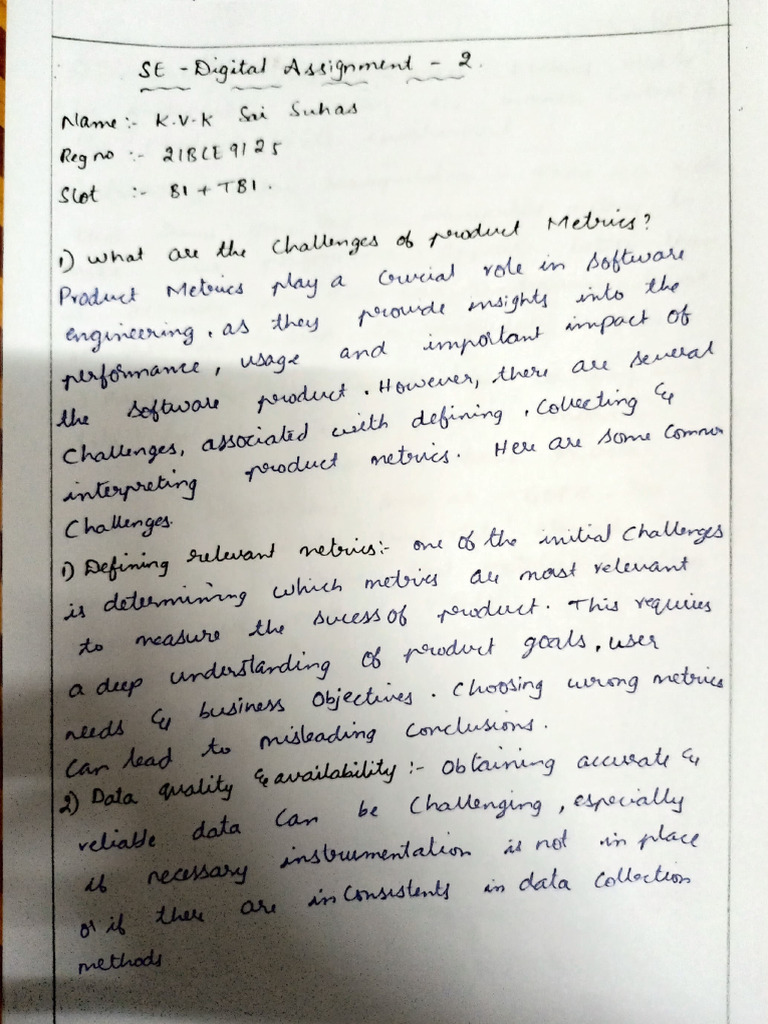 SE - Digital Assignment - 2.
Name:- K.V.K Sai Suhas
Reg no :- 21BCE9125
Slot :- B1 + TB1.
1) What are the Challenges of product Metrics?
Product Metrics play a Crucial role in software
engineering, as they provide insights into the
performance, usage and important impact of
the software product. However, there are several
Challenges, associated with defining, Collecting &
interpreting product metrics. Here are some Common
Challenges.
1) Defining relevant metrics:- one of the initial Challenges
is determining which metrics are most relevant
to measure the sucess of product. This requires
a deep understanding of product goals, user
needs & business Objectives. Choosing wrong metrics
Can lead to misleading Conclusions.
2) Data quality & availability :- Obtaining accurate &
reliable data Can be Challenging, especially
if necessary instrumentation is not in place
or if there are inConsistents in data Collection
methods